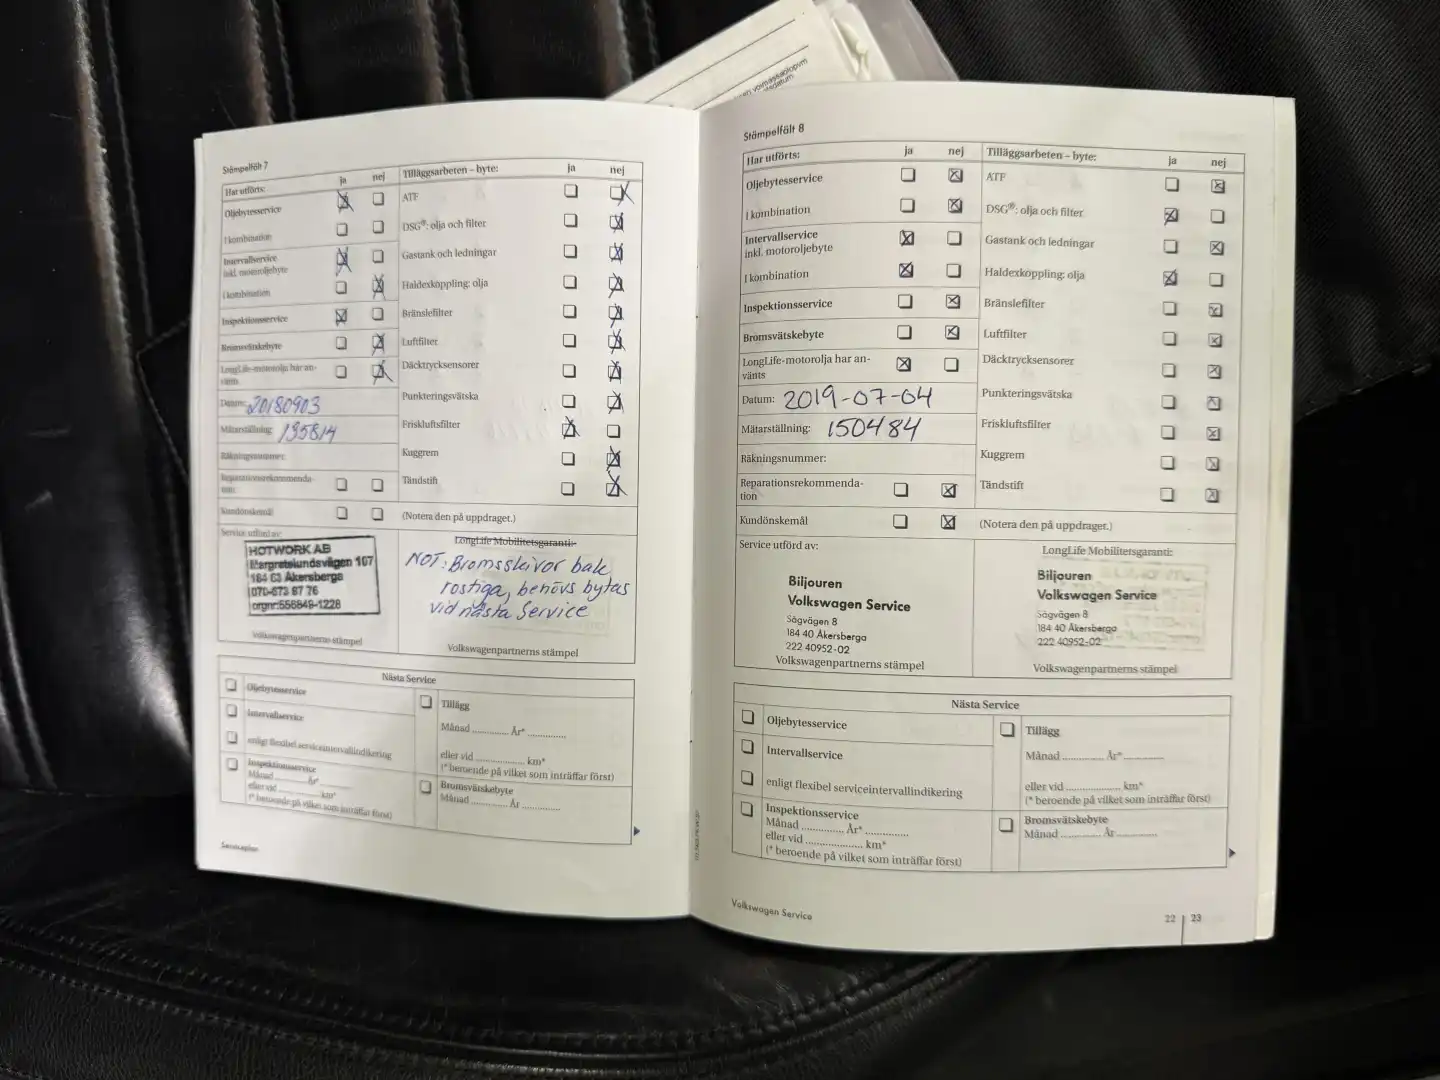 Stämpelfält 7
Har utförts: ja nej
Oljebytesservice
I kombination
Intervallservice
inkl. motoroljebyte
I kombination
Inspektionsservice
Bromsvätskebyte
LongLife-motorolja har an-
vänts
Datum: 20180903
Mätarställning: 135814
Räkningsnummer:
Reparationsrekommenda-
tion:
Kundönskemål
Tilläggsarbeten – byte: ja nej
ATF
DSG®: olja och filter
Gastank och ledningar
Haldexkoppling: olja
Bränslefilter
Luftfilter
Däcktrycksensorer
Punkteringsvätska
Friskluftsfilter
Kuggrem
Tändstift
(Notera den på uppdraget.)
Service utförd av:
HOTWORK AB
Margretelundsvägen 107
184 63 Åkersberga
070-673 87 76
orgnr:556849-1228
Volkswagenpartnerns stämpel
LongLife Mobilitetsgaranti:
NOT: Bromsskivor bak
rostiga, behövs bytas
vid nästa Service
Volkswagenpartnerns stämpel
Nästa Service
Oljebytesservice
Intervallservice
enligt flexibel serviceintervallindikering
Inspektionsservice
Månad ............ År* ............
eller vid ............ km*
(* beroende på vilket som inträffar först)
Tillägg
Månad ............ År* ............
eller vid ............ km*
(* beroende på vilket som inträffar först)
Bromsvätskebyte
Månad ............ År ............
Serviceplan
Stämpelfält 8
Har utförts: ja nej
Oljebytesservice
I kombination
Intervallservice
inkl. motoroljebyte
I kombination
Inspektionsservice
Bromsvätskebyte
LongLife-motorolja har an-
vänts
Datum: 2019-07-04
Mätarställning: 150484
Räkningsnummer:
Reparationsrekommenda-
tion
Kundönskemål
Tilläggsarbeten – byte: ja nej
ATF
DSG®: olja och filter
Gastank och ledningar
Haldexkoppling: olja
Bränslefilter
Luftfilter
Däcktrycksensorer
Punkteringsvätska
Friskluftsfilter
Kuggrem
Tändstift
(Notera den på uppdraget.)
Service utförd av:
Biljouren
Volkswagen Service
Sågvägen 8
184 40 Åkersberga
222 40952-02
Volkswagenpartnerns stämpel
LongLife Mobilitetsgaranti:
Biljouren
Volkswagen Service
Sågvägen 8
184 40 Åkersberga
222 40952-02
Volkswagenpartnerns stämpel
Nästa Service
Oljebytesservice
Intervallservice
enligt flexibel serviceintervallindikering
Inspektionsservice
Månad ............ År* ............
eller vid ............ km*
(* beroende på vilket som inträffar först)
Tillägg
Månad ............ År* ............
eller vid ............ km*
(* beroende på vilket som inträffar först)
Bromsvätskebyte
Månad ............ År ............
Volkswagen Service
22 | 23